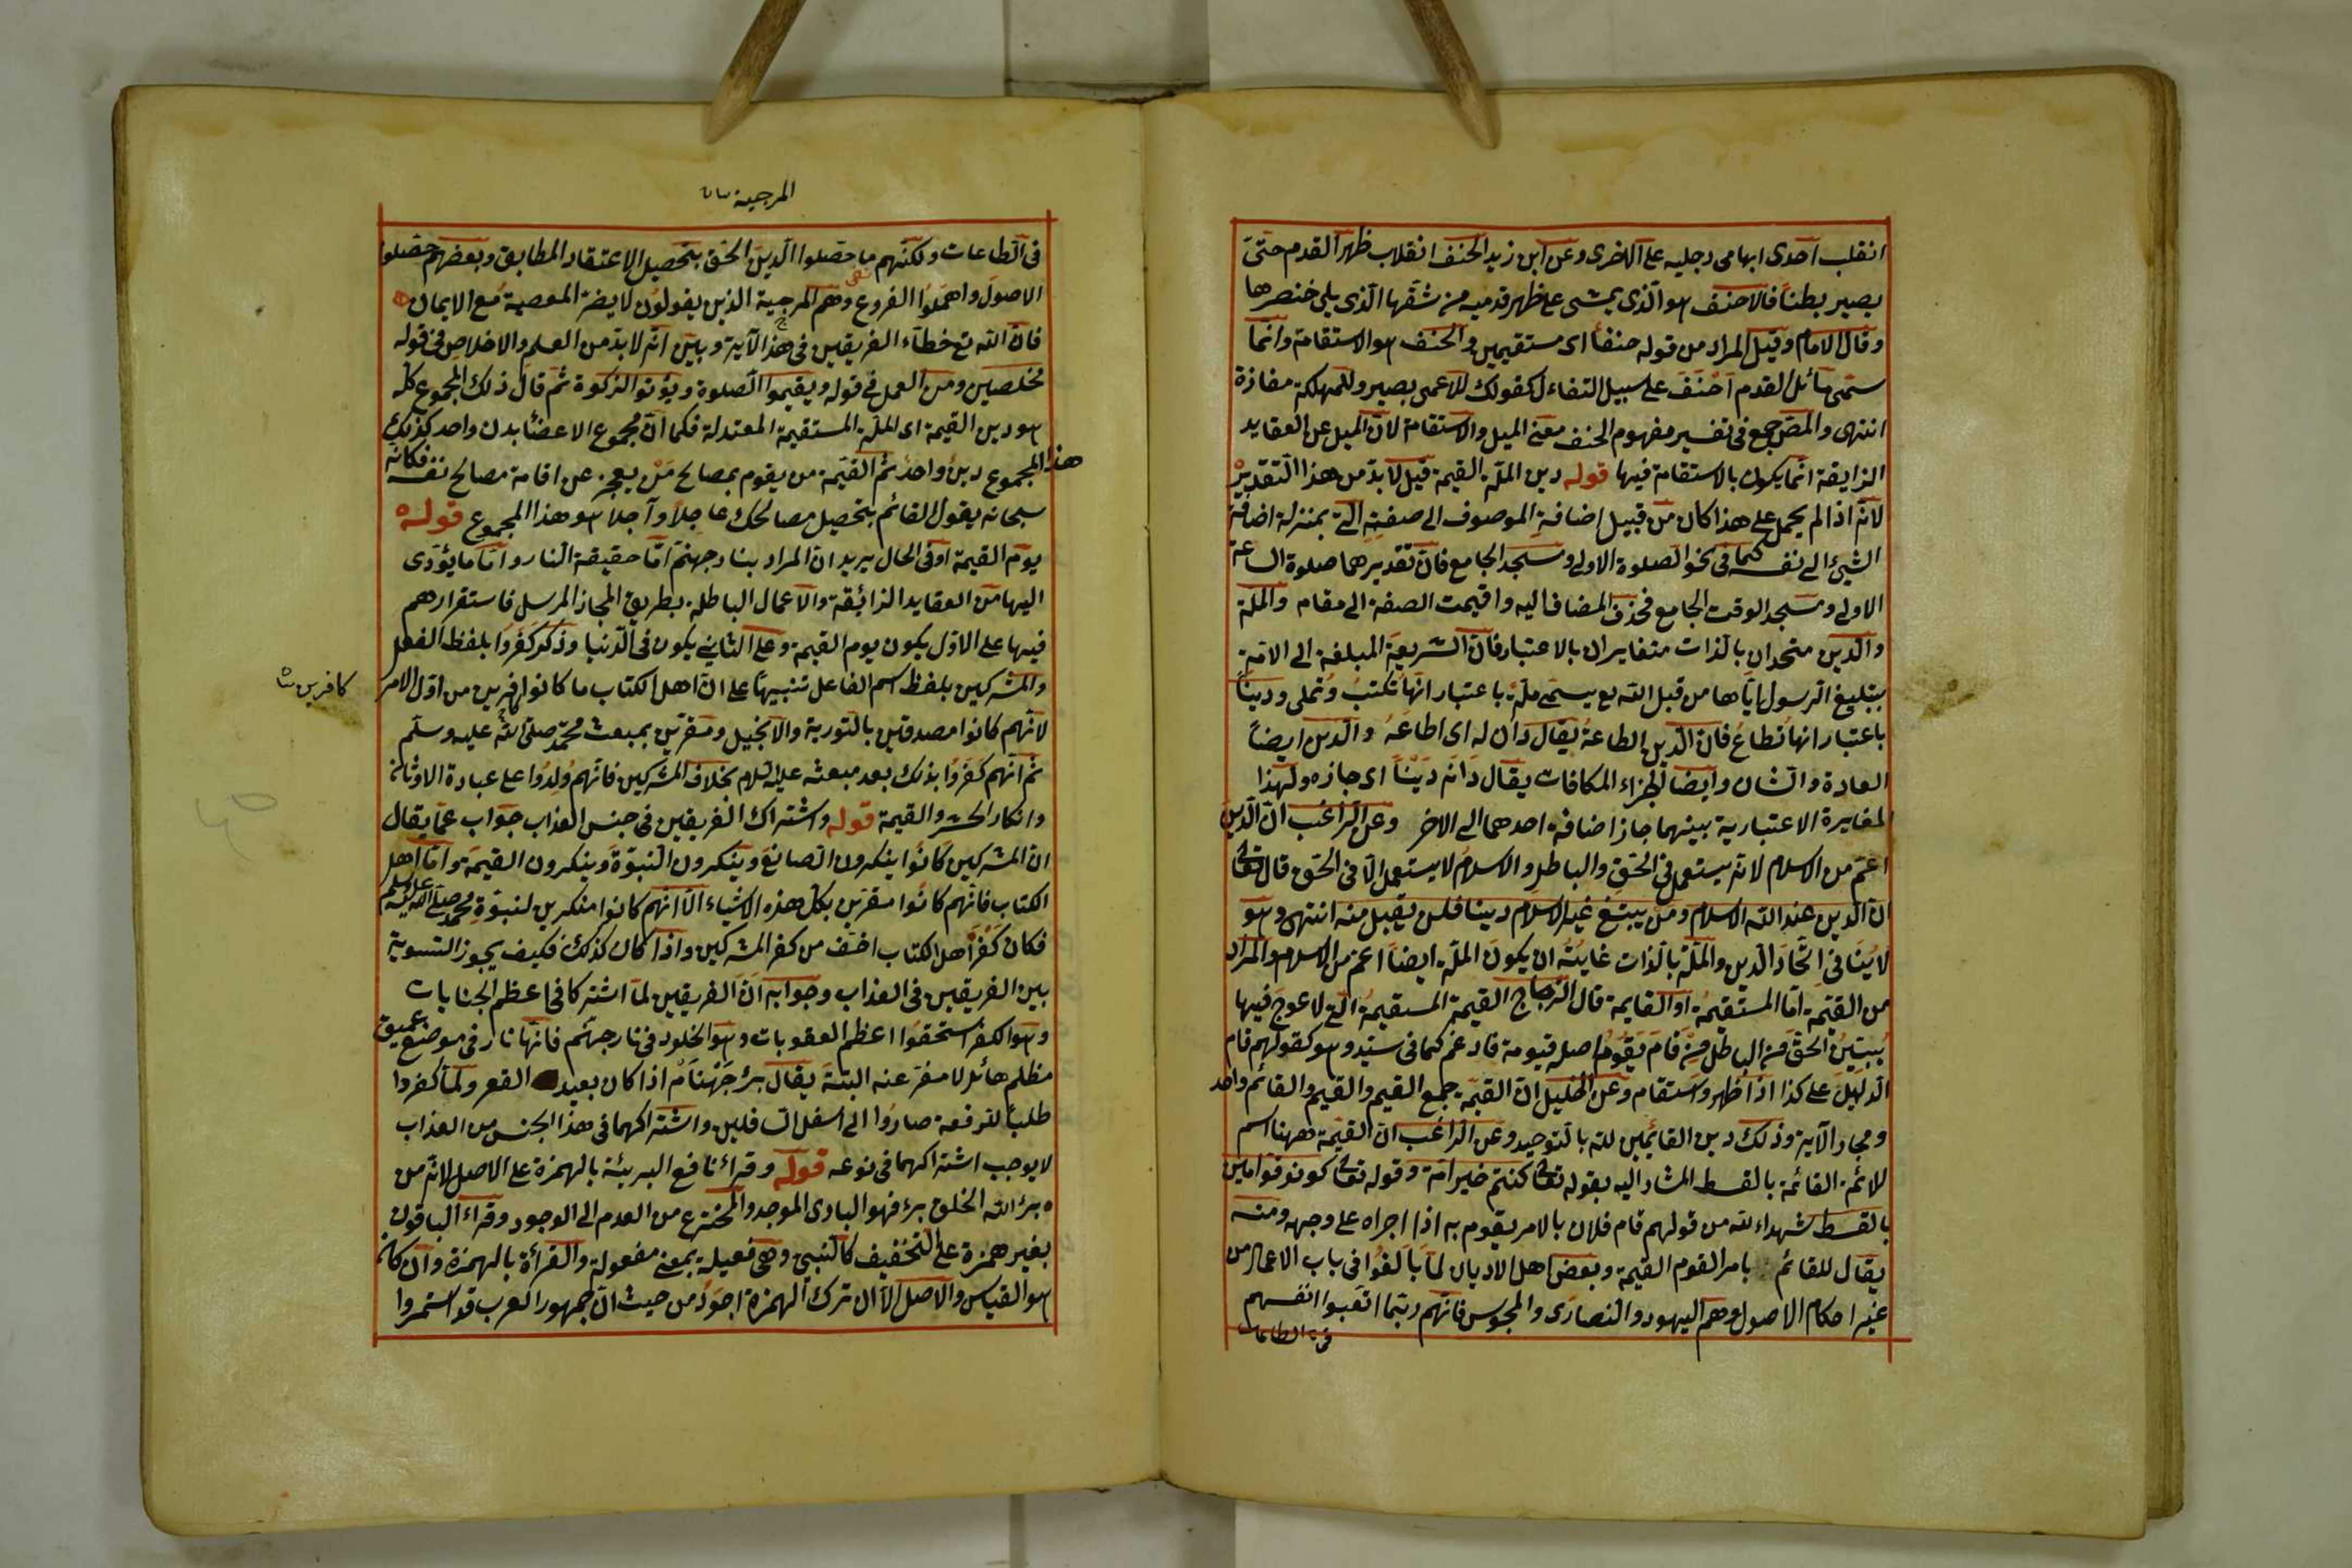 انقلب احدى ابهامى رجليه على الاخرى وعن ابن زيد الحنف انقلاب ظهر القدم حتى
يصير بطنا فالاحنف هو الذى يمشى على ظهر قدميه من شقها الذى يلى خنصرها
وقال الامام وقيل المراد من قوله حنفا اى مستقيمين والحنف هو الاستقامة وانما
سمى مائل القدم احنف على سبيل التفاءل كقولك للاعمى بصير وللمهلكة مفازة
انتهى والمص جمع فى تفسير مفهوم الحنف معنى الميل والاستقامة لان الميل عن العقايد
الزايغة انما يكون بالاستقامة فيها قوله دين الملة القيمة قيل لا بد من هذا التقدير
لانه اذا لم يحمل على هذا كان من قبيل اضافة الموصوف الى صفته التى بمنزلة اضافة
الشيئ الى نفسه كما فى نحو الصلوة الاولى ومسجد الجامع فان تقديرهما صلوة الساعة
الاولى ومسجد الوقت الجامع فحذف المضاف اليه واقيمت الصفة الى مقام والملة
والدين متحدان بالذات متغايران بالاعتبار فان الشريعة المبلغة الى الامة
بتبليغ الرسول اياها من قبل الله تع يسمى ملة باعتبار انها تكتب وتملى ودينا
باعتبار انها تطاع فان الدين الطاعة يقال دان له اى اطاعه والدين ايضا
العادة والشان وايضا الجزاء المكافات يقال دانه دينا اى جازه ولهذا
المغايرة الاعتبارية بينهما جاز اضافة احدهما الى الاخر وعن الراغب ان الدين
اعم من الاسلام لانه يستعمل فى الحق والباطل والاسلام لا يستعمل الا فى الحق قال تعالى
ان الدين عند الله الاسلام ومن يبتغ غير الاسلام دينا فلن يقبل منه انتهى وهو
لا ينافى اتحاد الدين والملة بالذات غايته ان يكون الملة ايضا اعم من الاسلام والمراد
من القيمة اما المستقيمة او القايمة قال الزجاج القيمة المستقيمة التى لا عوج فيها
يبين الحق من الباطل من قام يقوم اصله قيومة فادغم كما فى سيد وهو كقولهم قام
الدليل على كذا اذا ظهر واستقام وعن الخليل ان القيمة جمع القيم والقيم والقائم واحد
ومجاز الآية وذلك دين القائمين لله بالتوحيد وعن الراغب ان القيمة ههنا اسم
للائمة القائمة بالقسط المشار اليه بقوله تعالى كنتم خير امة وقوله تعالى كونوا قوامين
بالقسط شهداء لله من قولهم قام فلان بالامر يقوم به اذا اجراه على وجهه ومنه
يقال للقائم بامر القوم القيمة وبعض اهل الاديان لما بالغوا فى باب الاعمال من
غير احكام الاصول وهم اليهود والنصارى والمجوس فانهم ربما اتعبوا انفسهم
فى الطاعات
المرجية
فى الطاعات ولكنهم ما حصلوا الدين الحق بتحصيل الاعتقاد المطابق وبعضهم حصلوا
الاصول واهملوا الفروع وهم المرجية الذين يقولون لا يضر المعصية مع الايمان
فان الله تع خطاء الفريقين فى هذ الآية وبين انه لا بد من العلم والاخلاص فى قوله
مخلصين ومن العمل فى قوله ويقيموا الصلوة ويؤتوا الزكوة ثم قال ذلك المجموع كله
هو دين القيمة اى الملة المستقيمة المعتدلة فكما ان مجموع الاعضا بدن واحد كذلك
هذا المجموع دين واحد ثم القيمة من يقوم بمصالح من يعجز عن اقامة مصالح نفسه فكانه
سبحانه يقول القائم بتحصيل مصالحك عاجلا وآجلا هو هذا المجموع قوله
يوم القيمة او فى الحال يريد ان المراد بنار جهنم اما حقيقة النار واما ما يؤدى
اليها من العقايد الزائغة والاعمال الباطلة بطريق المجاز المرسل فاستقرارهم
فيها على الاول يكون يوم القيمة وعلى الثانى يكون فى الدنيا وذكر كفروا بلفظ الفعل
والمشركين بلفظ اسم الفاعل تنبيها على ان اهل الكتاب ما كانوا كافرين من اول الامر
كافرين
لانهم كانوا مصدقين بالتورية والانجيل ومقرين بمبعث محمد صلى الله عليه وسلم
ثم انهم كفروا بذلك بعد مبعثه عليه السلام بخلاف المشركين فانهم ولدوا على عبادة الاوثان
وانكار الحشر والقيمة قوله واشتراك الفريقين فى جنس العذاب جواب عما يقال
ان المشركين كانوا ينكرون الصانع وينكرون النبوة وينكرون القيمة واما اهل
الكتاب فانهم كانوا مقرين بكل هذه الاشياء الا انهم كانوا منكرين لنبوة محمد صلى الله عليه وسلم
فكان كفر اهل الكتاب اخف من كفر المشركين واذا كان كذلك فكيف يجوز التسوية
بين الفريقين فى العذاب وجوابه ان الفريقين لما اشتركا فى اعظم الجنايات
وهو الكفر استحقوا اعظم العقوبات وهو الخلود فى نار جهنم فانها نار فى موضع عميق
مظلم هائل لا مفر عنه البتة يقال بئر جهنام اذا كان بعيد القعر ولما كفروا
طلبا لترفعة صاروا الى اسفل السافلين واشتراكهما فى هذا الجنس من العذاب
لا يوجب اشتراكهما فى نوعه قوله وقراء نافع البريئة بالهمزة على الاصل لانه من
برئ الله الخلق برء فهو البارى الموجد والمخترع من العدم الى الوجود وقراء الباقون
بغير همزة على التخفيف كالنبى وهى فعيلة بمعنى مفعولة والقرأة بالهمزة وان كانت
هو القياس والاصل الا ان ترك الهمزة اجود من حيث ان جمهور العرب قد استمروا